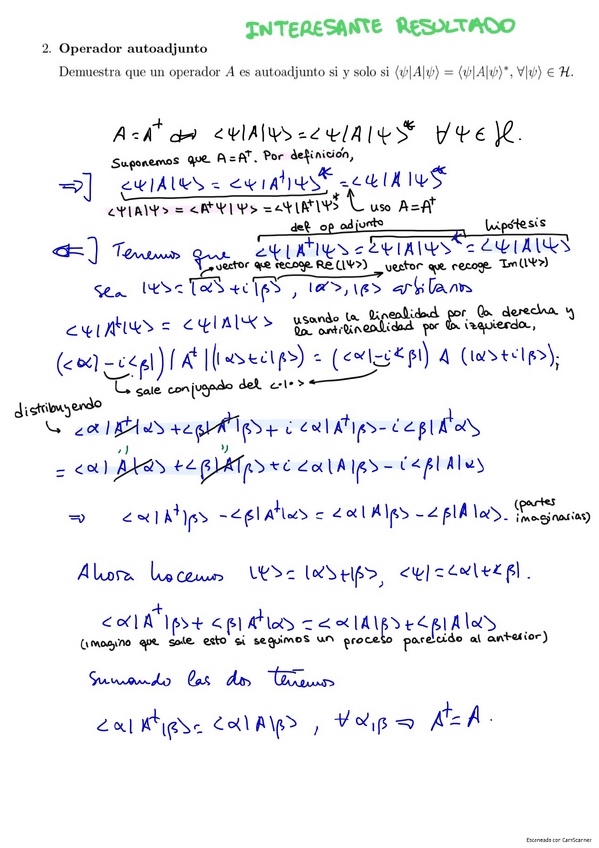 INTERESANTE RESULTADO
2. Operador autoadjunto
Demuestra que un operador A es autoadjunto si y solo si ⟨ψ|A|ψ⟩ = ⟨ψ|A|ψ⟩*, ∀|ψ⟩ ∈ ℋ.
A = A† ⇔ <ψ|A|ψ> = <ψ|A|ψ>* ∀ψ ∈ ℋ.
Suponemos que A = A†. Por definición,
⇒] <ψ|A|ψ> = <ψ|A†|ψ>* = <ψ|A|ψ>*
<ψ|A|ψ> = <A†ψ|ψ> = <ψ|A†|ψ>* uso A = A†
def op adjunto hipótesis
⇐] Tenemos que <ψ|A†|ψ> = <ψ|A|ψ>* = <ψ|A|ψ>
vector que recoge Re(|ψ>) vector que recoge Im(|ψ>)
sea |ψ> = |α> + i|β>, |α>, |β> arbitarios
<ψ|A†|ψ> = <ψ|A|ψ> usando la linealidad por la derecha y
la antilinealidad por la izquierda,
(<α| - i<β|) | A† | (|α> + i|β>) = (<α| - i<β|) A (|α> + i|β>);
sale conjugado del <·|·>
distribuyendo
<α|A†|α> + <β|A†|β> + i<α|A†|β> - i<β|A†α>
= <α|A|α> + <β|A|β> + i<α|A|β> - i<β|A|α>
⇒ <α|A†|β> - <β|A†|α> = <α|A|β> - <β|A|α>. (partes
imaginarias)
Ahora hacemos |ψ> = |α> + |β>, <ψ| = <α| + <β|.
<α|A†|β> + <β|A†|α> = <α|A|β> + <β|A|α>
(imagino que sale esto si seguimos un proceso parecido al anterior)
Sumando las dos tenemos
<α|A†|β> = <α|A|β>, ∀α,β ⇒ A† = A.
Escaneado con CamScanner